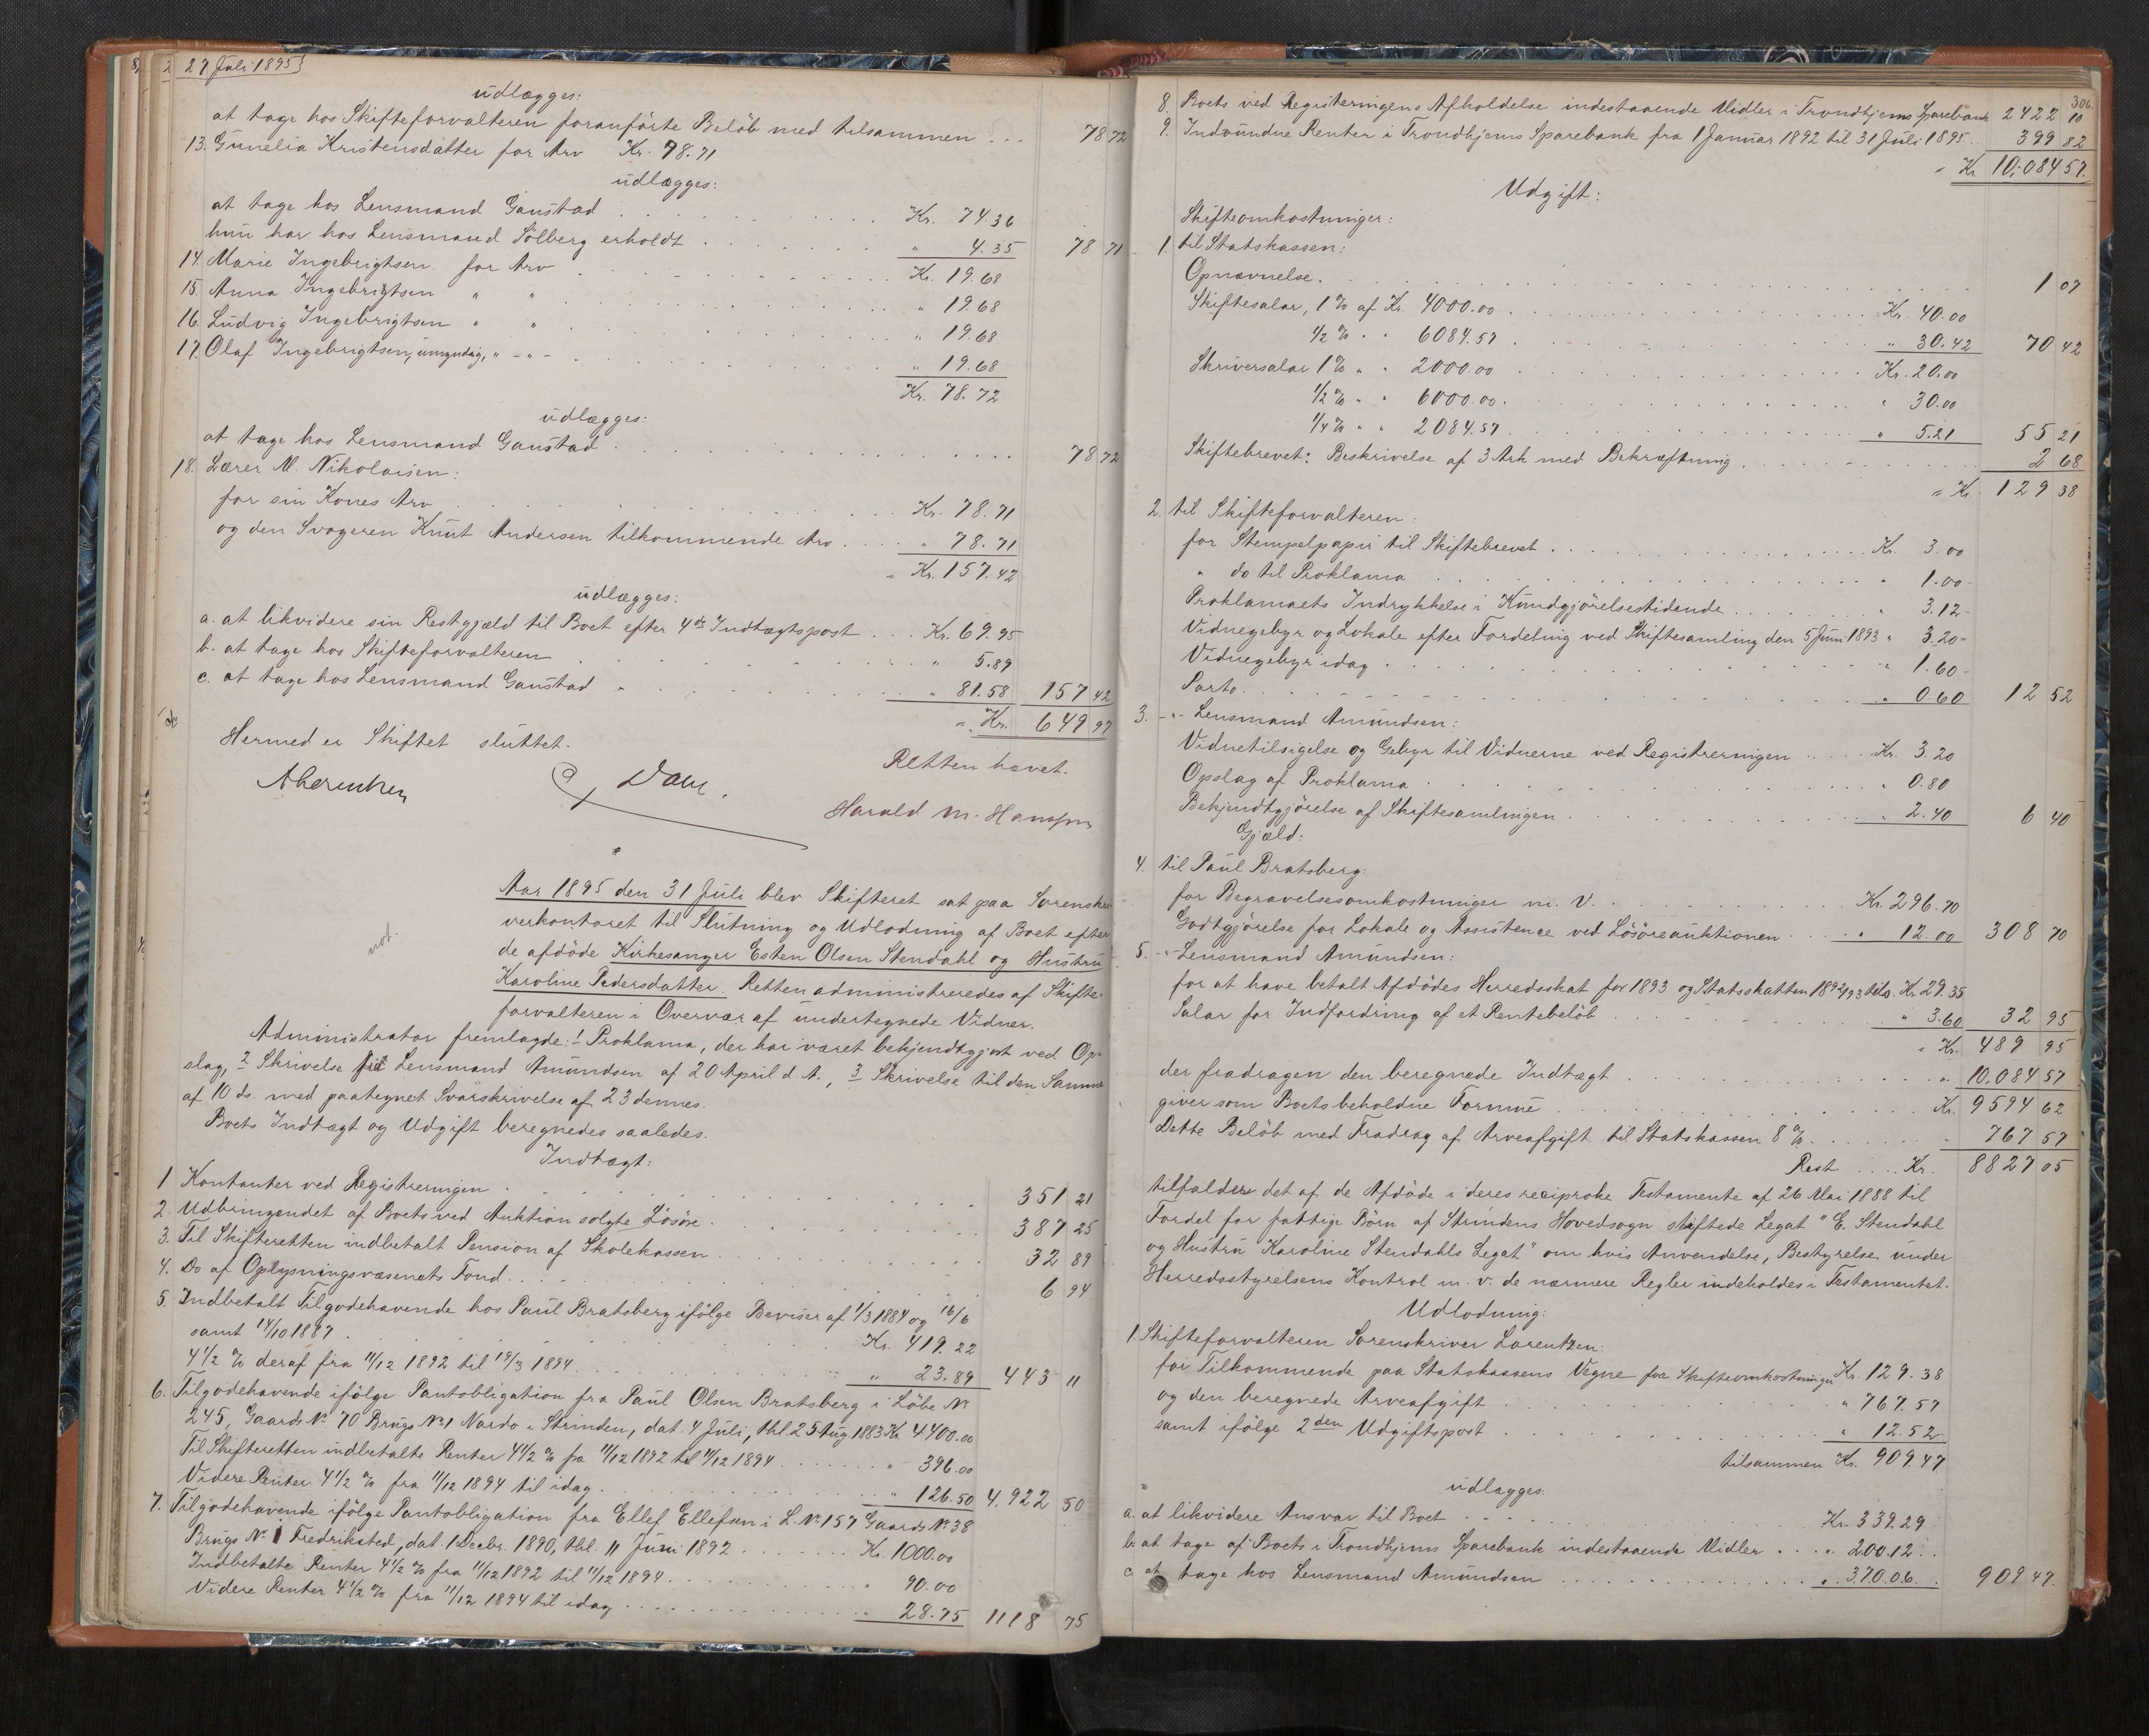 27 Juli 1895
udlægges:
at tage hos Skifteforvalteren foranførte Beløb med tilsammen ... 78 72
13. Gunelia Kristensdatter for Arv Kr. 78.71
udlægges:
at tage hos Lensmand Gaustad . . . Kr. 74.36
hun har hos Lensmand Sölberg erholdt . . . " 4.35 78 71
14. Marie Ingebrigtsen for Arv . . . Kr. 19.68
15. Anna Ingebrigtsen " " . . . " 19.68
16. Ludvig Ingebrigtsen " " . . . " 19.68
17. Olaf Ingebrigtsen, umyndig, " - " - . . . " 19.68
Kr. 78.72
udlægges:
at tage hos Lensmand Gaustad . . . 78 72
18. Lærer M. Nikolaisen:
for sin Kones Arv . . . Kr. 78.71
og den Svogeren Knut Andersen tilkommende Arv . . . " 78.71
= Kr. 157.42
udlægges:
a. at likvidere sin Restgjæld til Boet efter 4de Indtægtspost . . . Kr. 69.95
b. at tage hos Skifteforvalteren . . . " 5.89
c. at tage hos Lensmand Gaustad . . . " 81.58 157 42
= Kr. 649 97
Hermed er Skiftet sluttet.
Retten hævet.
Harald M. Hansen
Aar 1895 den 31 Juli blev Skifteret sat paa Sorenskri
verkontoret til Slutning og Udlodning af Boet efter
de afdöde Kirkesanger Esten Olsen Stendahl og Hustru
Karoline Pedersdatter. Retten administreredes af Skifte-
forvalteren i Overvær af undertegnede Vidner.
not.
Administrator fremlagde: 1 Proklama, der har været bekjendtgjort ved Op-
slag, 2 Skrivelse til Lensmand Amundsen af 20 April d. A., 3 Skrivelse til den Samme
af 10 ds. med paategnet Svarskrivelse af 23 dennes.
Boets Indtægt og Udgift beregnedes saaledes.
Indtægt:
1 Kontanter ved Registreringen . . . 351 21
2. Udbringendet af Boets ved Auktion solgte Lösöre . . . 387 25
3. Til Skifteretten indbetalt Pension af Skolekassen . . . 32 89
4. Do af Oplysningsvæsenets Fond . . . 6 94
5. Indbetalt Tilgodehavende hos Paul Bratsberg ifölge Beviser af 1/3 1884 og 16/6
samt 14/10 1887 . . . Kr. 419.22
4 1/2 % deraf fra 11/12 1892 til 19/3 1894 . . . " 23.89 443 11
6. Tilgodehavende ifölge Pantobligation fra Paul Olsen Bratsberg i Löbe No
245, Gaards No 70 Brugs No 1 Nardo i Strinden, dat. 4 Juli, thl. 25 Aug 1883 Kr 4400.00
Til Skifteretten indbetalte Renter 4 1/2 % fra 11/12 1892 til 11/12 1894 . . . " 396.00
Videre Renter 4 1/2 % fra 11/12 1894 til idag . . . " 126.50 4.922 50
7. Tilgodehavende ifölge Pantobligation fra Ellef Ellefsen i L. No 157 Gaards No 38
Brugs No 1 Fredriksted, dat. 1 Decbr. 1890, thl. 11 Juni 1892 . . . Kr. 1000.00
Indbetalte Renter 4 1/2 % fra 11/12 1892 til 11/12 1894 . . . " 90.00
Videre Renter 4 1/2 % fra 11/12 1894 til idag . . . " 28.75 1118 75
306.
8. Boets ved Registeringens Afholdelse indestaaende Midler i Trondhjems Sparebank 2422 10
9. Indvundne Renter i Trondhjems Sparebank fra 1 Januar 1892 til 31 Juli 1895 . . 399 82
= Kr 10,084 57.
Udgift:
Skifteomkostninger:
1. til Statskassen:
Opnævnelse . . . 1 07
Skiftesalar, 1 % af Kr. 4000.00 . . . Kr. 40.00
1/2 % " " 6084.57 . . . " 30.42 70 42
Skriversalar 1 % " " 2000.00 . . . Kr. 20.00
1/2 % " " 6000.00 . . . " 30.00
1/4 % " " 2084.57 . . . " 5.21 55 21
Skiftebrevet: Beskrivelse af 3 Ark med Bekræftning . . . 2 68
= Kr. 129 38
2. til Skifteforvalteren:
for Stempelpapir til Skiftebrevet . . . Kr. 3.00
" do til Proklama . . . " 1.00
Proklamaets Indrykkelse i Kundgjörelsestidende . . . " 3.12
Vidnegebyr og Lokale efter Fordeling ved Skiftesamling den 5 Juni 1893 " 3.20
Vidnegebyr idag . . . " 1.60
Porto . . . " 0.60 12 52
3. -"- Lensmand Amundsen:
Vidnetilsigelse og Gebyr til Vidnerne ved Registreringen . . . Kr. 3.20
Opslag af Proklama . . . " 0.80
Bekjendtgjörelse af Skiftesamlingen . . . " 2.40 6 40
Gjæld:
4. til Paul Bratsberg:
for Begravelsesomkostninger m. v. . . . Kr. 296.70
Godtgjörelse for Lokale og Assistence ved Lösöreauktionen . . . " 12.00 308 70
5. -"- Lensmand Amundsen:
for at have betalt Afdödes Herredsskat for 1893 og Statsskatten 1892/93 tils. Kr. 29.35
Salar for Indfordring af et Rentebelöb . . . " 3.60 32 95
= Kr. 489 95
der fradragen den beregnede Indtægt . . . " 10.084 57
giver som Boets beholdne Formue . . . Kr. 9594 62
Dette Belöb med Fradrag af Arveafgift til Statskassen 8 % . . . 767 57
Rest . . . Kr. 8827 05
tilfalder det af de Afdöde i deres reciproke Testamente af 26 Mai 1888 til
Fordel for fattige Börn af Strindens Hovedsogn stiftede Legat "E. Stendahl
og Hustru Karoline Stendahls Legat" om hvis Anvendelse, Bestyrelse under
Herredsstyrelsens Kontrol m. v. de nærmere Regler indeholdes i Testamentet.
Udlodning:
1. Skifteforvalteren Sorenskriver Lorentzen:
for Tilkommende paa Statskassens Vegne for Skifteomkostninger Kr. 129.38
og den beregnede Arveafgift . . . " 767.57
samt ifölge 2den Udgiftspost . . . " 12.52
tilsammen Kr. 909.47
udlægges:
a. at likvidere Ansvar til Boet . . . Kr. 339.29
b. at tage af Boets i Trondhjems Sparebank indestaaende Midler . . . " 200.12
c. at tage hos Lensmand Amundsen . . . " 370.06 909 47.